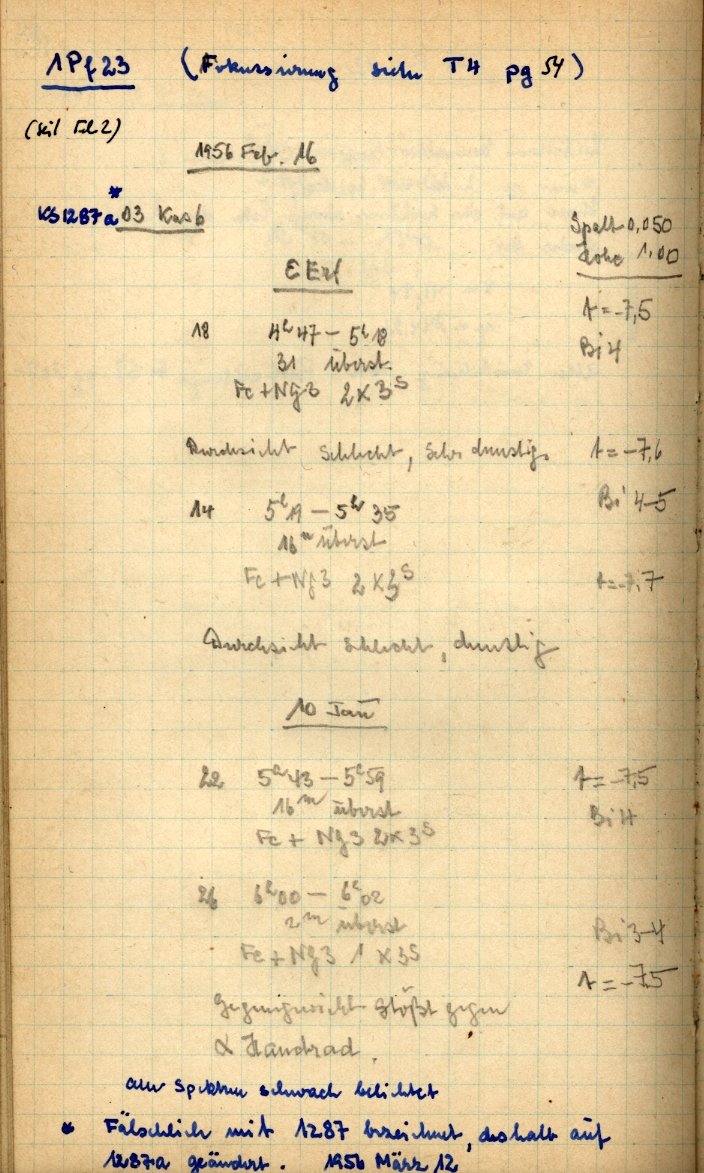 1Pf23 (Fokussierung siehe T4 pg 54)
(seit Fd. 2)
1956 Febr. 16
KS1287a* 03 Kas6
Spalt 0,050
Höhe 1.00
ε Eri
t = -7,5
18 4h47 – 5h18
Bi 4
31 überst.
Fe + Ng3 2x3s
Durchsicht schlecht, sehr dunstig. t = -7,6
Bi 4-5
14 5h19 – 5h35
16m überst
Fe + Ng3 2x3s t = -7,7
Durchsicht schlecht, dunstig
10 Tau
22 5h43 – 5h59 t = -7,5
16m überst Bi 4
Fe + Ng3 2x3s
26 6h00 – 6h02
2m überst Bi 3-4
Fe + Ng3 1x3s
t = -7,5
Gegengewicht stößt gegen
α Handrad.
alle Spektren schwach belichtet
* Fälschlich mit 1287 bezeichnet, deshalb auf
1287a geändert. 1956 März 12